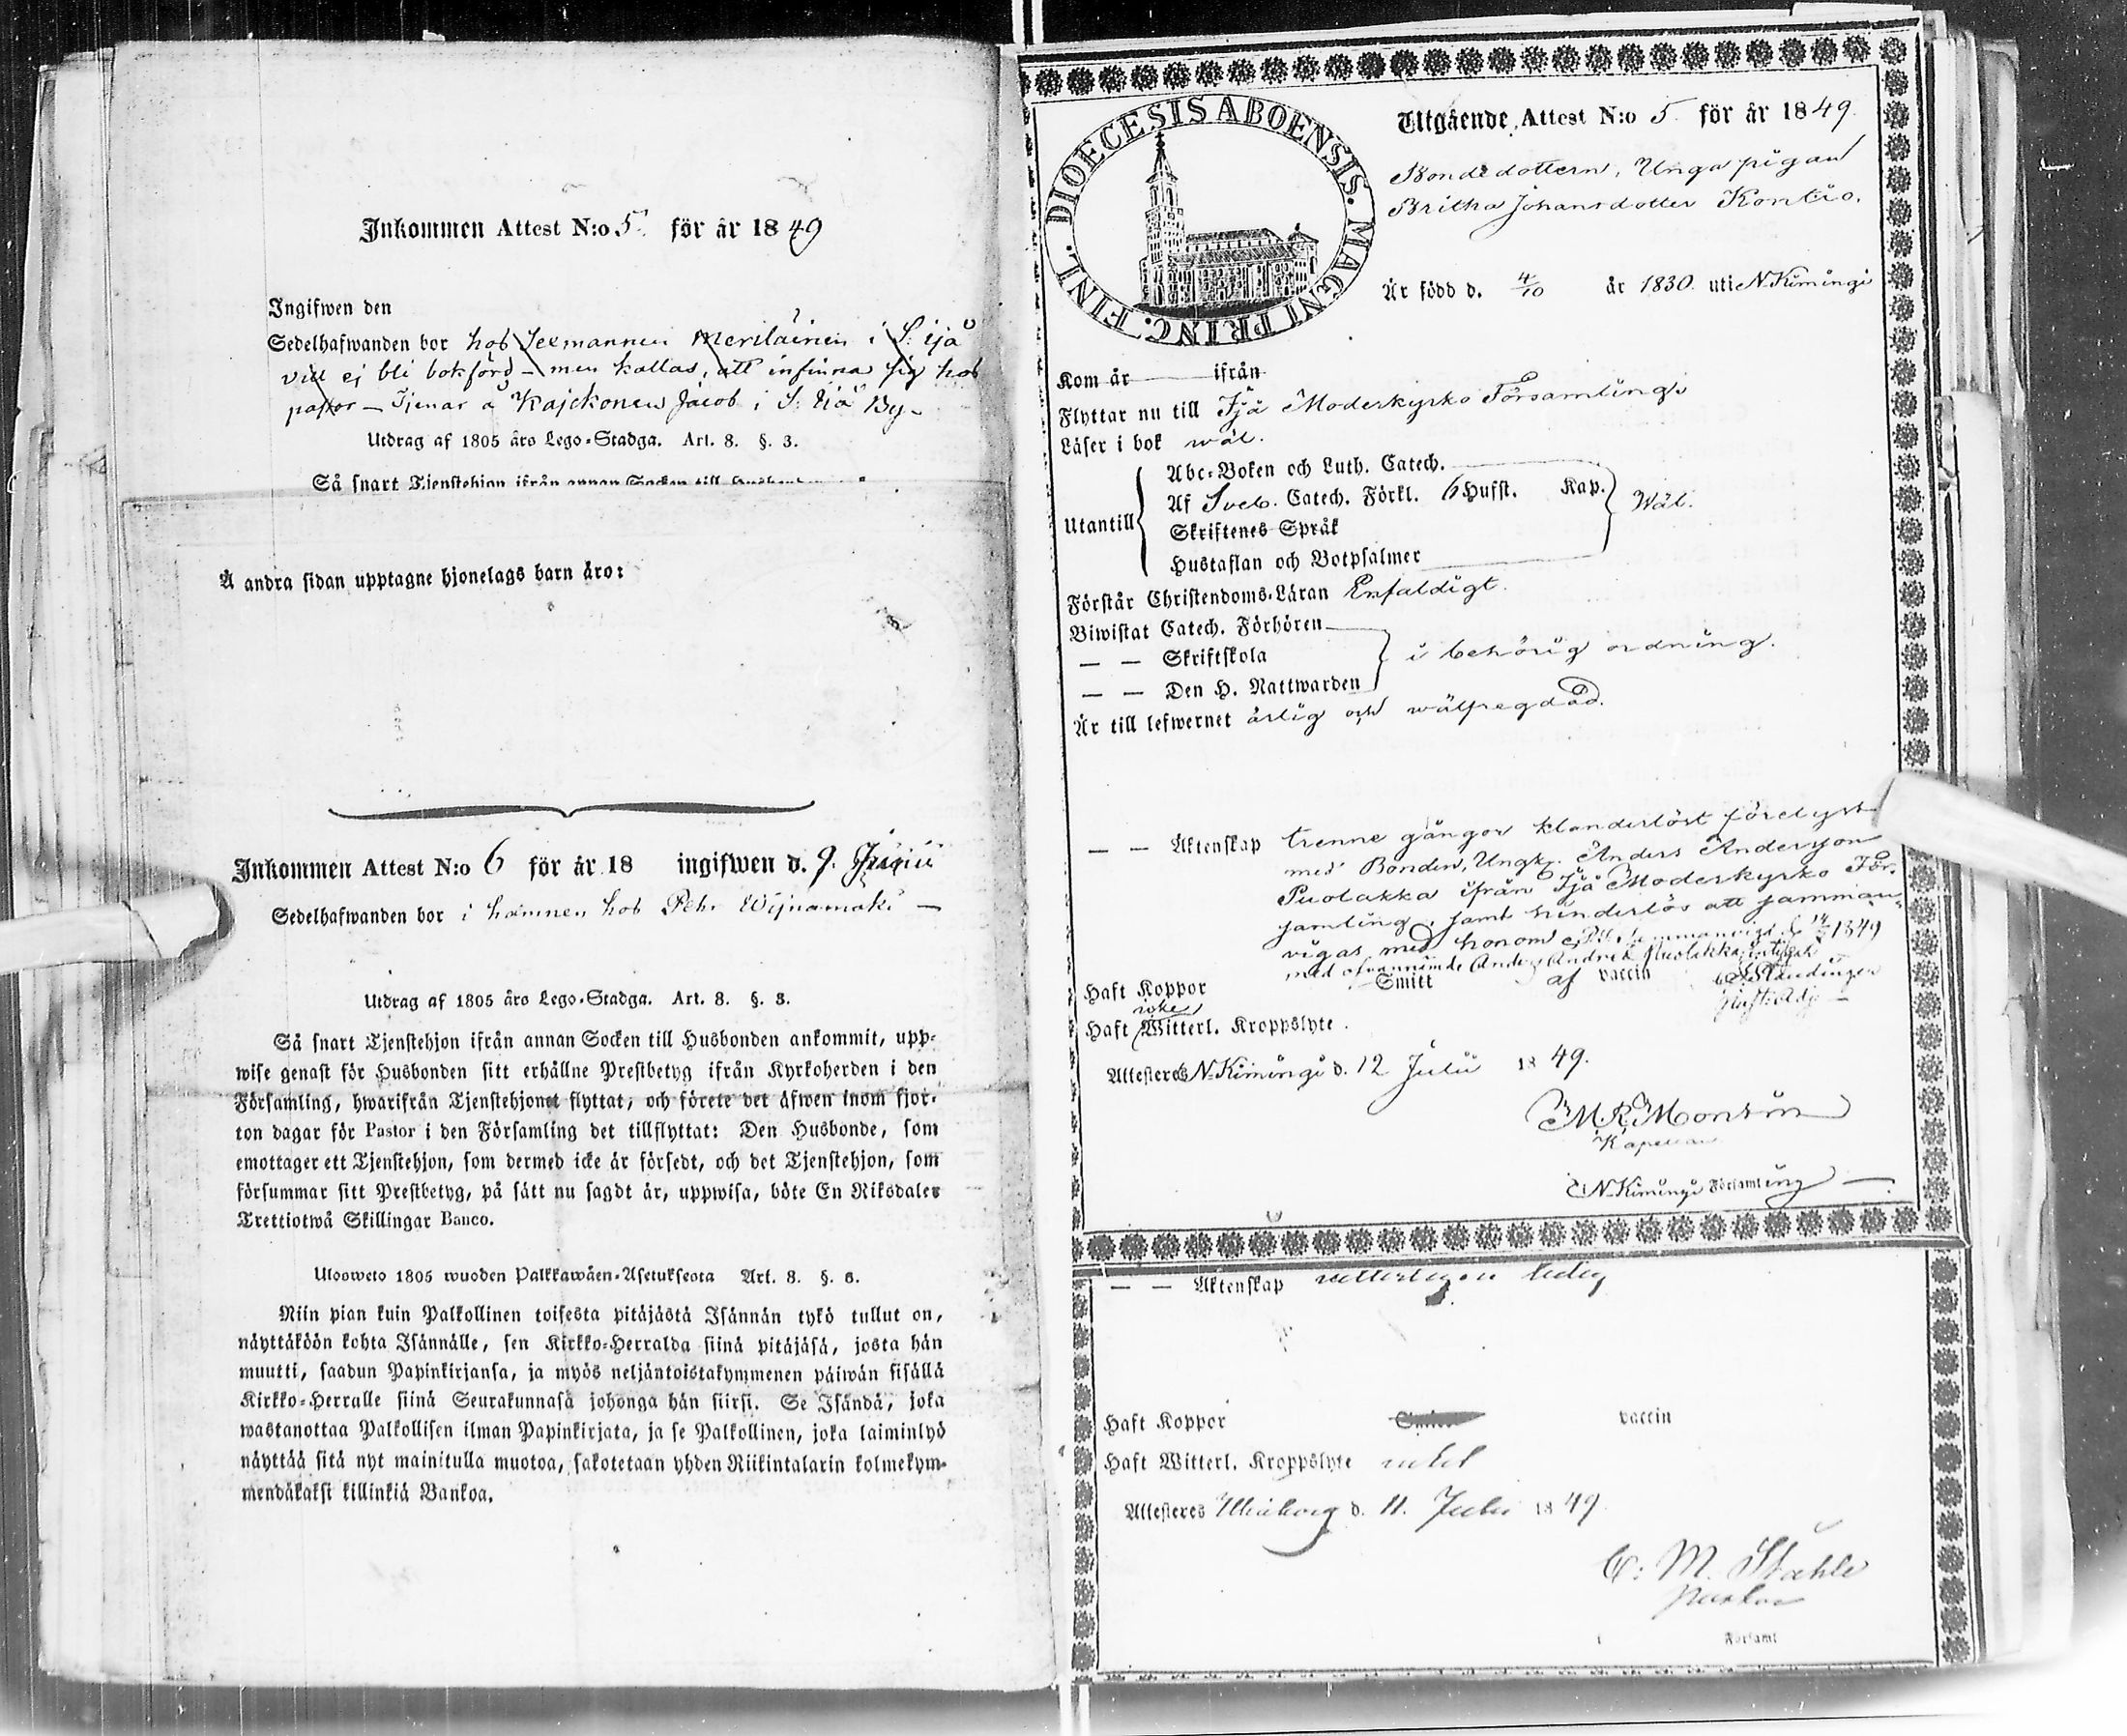 Inkommen Attest N:o 5. för år 1849
Ingifwen den
Sedelhafwanden bor hos Seemannen Meriläinen i S: Ijå
vill ej bli bokförd – men kallas, att infinna sig hos
pastor – Tjenar å Kajckonen Jacob i S: Ijå By –
Utdrag af 1805 års Lego-Stadga. Art. 8. §. 3.
Så snart Tjenstehjon ifrån annan Socken till
Å andra sidan upptagne hjonelags barn äro:
Inkommen Attest N:o 6 för år 18 ingifwen d. 9.
Sedelhafwanden bor i hamnen hos Pehr Wijnamaki –
Utdrag af 1805 års Lego-Stadga. Art. 8. §. 3.
Så snart Tjenstehjon ifrån annan Socken till Husbonden ankommit, upp-
wise genast för Husbonden sitt erhållne Prestbetyg ifrån Kyrkoherden i den
Församling, hwarifrån Tjenstehjonet flyttat, och förete det äfwen inom fjor-
ton dagar för Pastor i den Församling det tillflyttat: Den Husbonde, som
emottager ett Tjenstehjon, som dermed icke är försedt, och det Tjenstehjon, som
försummar sitt Prestbetyg, på sätt nu sagdt är, uppwisa, böte En Riksdaler
Trettiotwå Skillingar Banco.
Ulosweto 1805 wuoden Palkkawäen-Asetuksesta Art. 8. §. 3.
Niin pian kuin Palkollinen toisesta pitäjästä Isännän tykö tullut on,
näyttäköön kohta Isännälle, sen Kirkko-Herralda siinä pitäjäsä, josta hän
muutti, saadun Papinkirjansa, ja myös neljäntoistakymmenen päiwän sisällä
Kirkko-Herralle siinä Seurakunnasa johonga hän siirsi. Se Isändä, joka
wastanottaa Palkollisen ilman Papinkirjata, ja se Palkollinen, joka laiminlyö
näyttää sitä nyt mainitulla muotoa, sakotetaan yhden Riikintalarin kolmekym-
mendäkaksi killinkiä Bankoa.
DIOECESIS ABOENSIS. MAGNI PRINC. FINL.
Utgående Attest N:o 5 för år 1849.
Bondedottern, Unga pigan
Britha Johansdotter Kontio.
Är född d. 4/10 år 1830. uti N. Kimingi
Kom år ifrån
Flyttar nu till Ijå Moderkyrko Församling
Läser i bok wäl.
Utantill
Abc-Boken och Luth. Catech.
Af Sveb. Catech. Förkl. 6 Hufst. Kap. Wäl.
Skriftenes Språk
Hustaflan och Botpsalmer
Förstår Christendoms-Läran Enfaldigt.
Biwistat Catech. Förhören
— — Skriftskola i behörig ordning.
— — Den H. Nattwarden
Är till lefwernet ärlig och wälfregdad.
— — Äktenskap trenne gångor klanderlöst förelyst
med Bonden, Ungk. Anders Andersson
Puolakka ifrån Ijå Moderkyrko För-
samling, samt hinderlös att samman-
vigas med honom 1849
med ofvannämnde Anders Puolakka, intygar
Haft Koppor Smitt af vaccin
icke
Haft Witterl. Kroppslyte.
Attesteras N. Kimingi d. 12 Julii 1849.
M R Montin
Kapellan
i N. Kimingi Församling
— — Äktenskap ledig
Haft Koppor Smitt vaccin
Haft Witterl. Kroppslyte
Attesteres Uleåborg d. 11. Julii 1849.
C: M. Ståhle
Pastor
i Församl